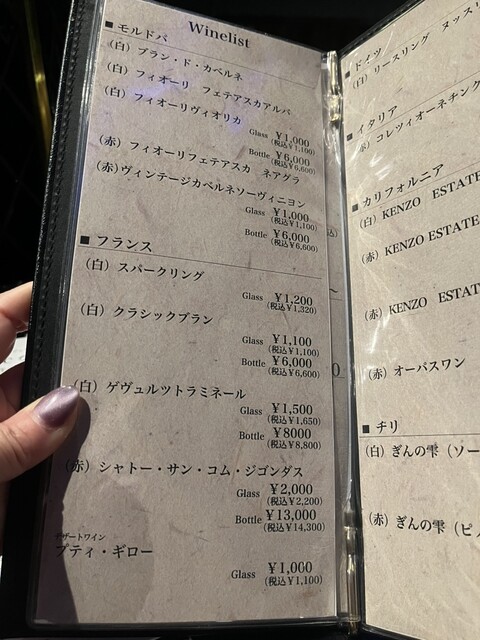 Winelist
■モルドバ
（白）ブラン・ド・カベルネ
（白）フィオーリ　フェテアスカアルバ
（白）フィオーリヴィオリカ
Glass ￥1,000
(税込￥1,100)
Bottle ￥6,000
(税込￥6,600)
（赤）フィオーリフェテアスカ　ネアグラ
（赤）ヴィンテージカベルネソーヴィニヨン
Glass ￥1,000
(税込￥1,100)
Bottle ￥6,000
(税込￥6,600)
■フランス
（白）スパークリング
Glass ￥1,200
(税込￥1,320)
（白）クラシックブラン
Glass ￥1,100
(税込￥1,100)
Bottle ￥6,000
(税込￥6,600)
（白）ゲヴュルツトラミネール
Glass ￥1,500
(税込￥1,650)
Bottle ￥8000
(税込￥8,800)
（赤）シャトー・サン・コム・ジゴンダス
Glass ￥2,000
(税込￥2,200)
Bottle ￥13,000
(税込￥14,300)
デザートワイン
プティ・ギロー
Glass ￥1,000
(税込￥1,100)
■ドイツ
（白）リースリング　ヌッス
■イタリア
（赤）コレツィオーネチンク
■カリフォルニア
（白）KENZO ESTATE
（赤）KENZO ESTATE
（赤）KENZO ESTAT
（赤）オーパスワン
■チリ
（白）ぎんの雫（ソー
（赤）ぎんの雫（ピノ